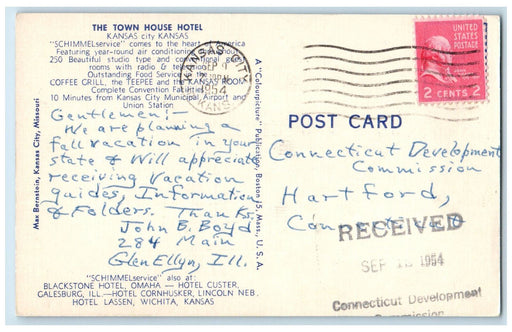 THE TOWN HOUSE HOTEL
KANSAS city KANSAS
"SCHIMMELservice" comes to the heart of America
Featuring year-round air conditioning throughout
250 Beautiful studio type and conventional guest
rooms with radio & television
Outstanding Food Service in the
COFFEE GRILL, the TEEPEE and the KANSAS ROOM
Complete Convention Facilities
10 Minutes from Kansas City Municipal Airport and
Union Station
Gentlemen:-
We are planning a
fall vacation in your
state & Will appreciate
receiving Vacation
guides, Information
& Folders. Thanks.
John B. Boyd
284 Main
Glen Ellyn, Ill.
"SCHIMMELservice" also at:
BLACKSTONE HOTEL, OMAHA — HOTEL CUSTER,
GALESBURG, ILL.—HOTEL CORNHUSKER, LINCOLN NEB.
HOTEL LASSEN, WICHITA, KANSAS
Max Bernstein, Kansas City, Missouri
A "Colourpicture" Publication, Boston 15, Mass., U. S. A.
KANSAS CITY
SEP
1954
KANS.
UNITED
STATES
POSTAGE
2 CENTS 2
POST CARD
Connecticut Development
Commission
Hartford,
Connecticut
RECEIVED
SEP 1954
Connecticut Development
Commission